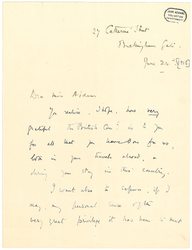 27 Catherine Street
Buckingham Gate.
June 24
Dear Miss Addams
You realise, I hope, how very
grateful the British Com: is to you
for all that you have done for us,
both in your travels abroad, &
during your stay in this country.
I want also to express, if I
may, my personal sense of the
very great privilege it has been to meet